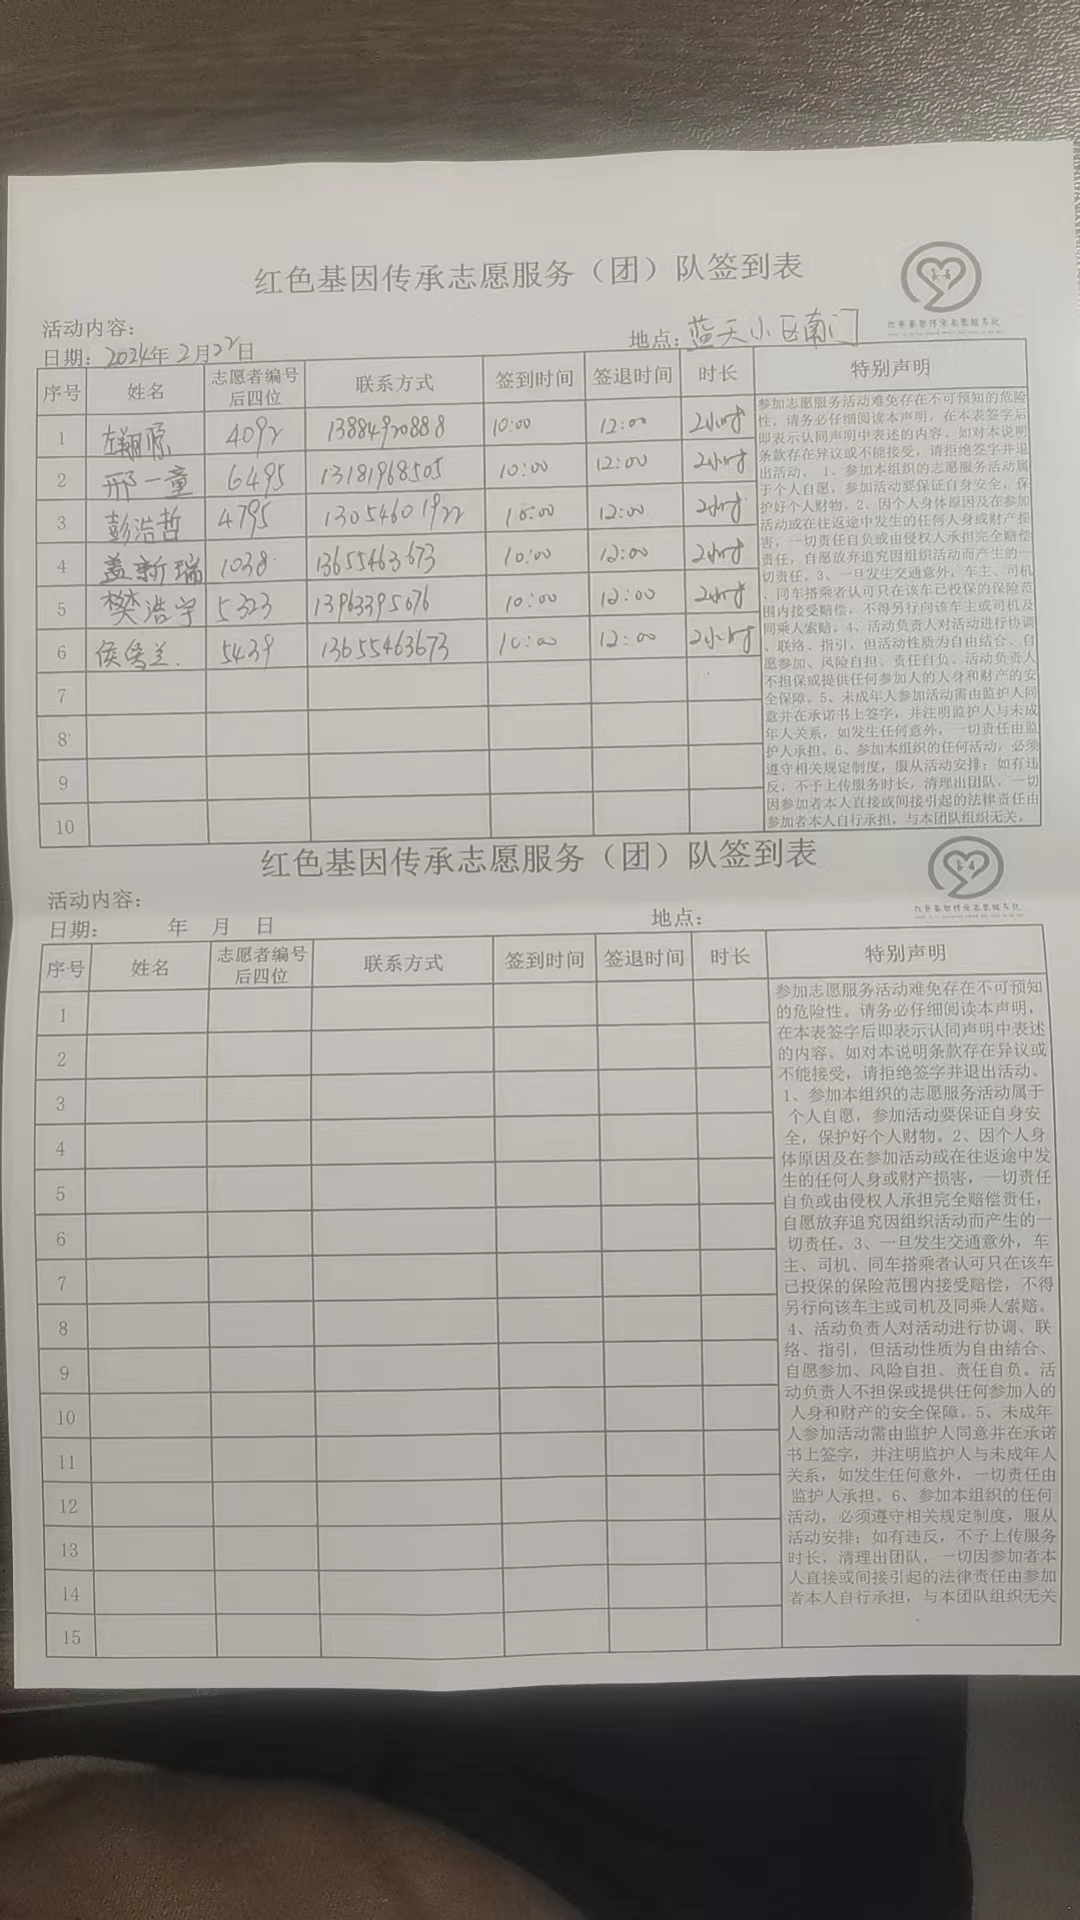 红色基因传承志愿服务（团）队签到表
活动内容：
日期：2024年2月22日 地点：蓝天小区南门
序号 姓名 志愿者编号后四位 联系方式 签到时间 签退时间 时长 特别声明
1 左翔 4092 13884920888 10:00 12:00 2小时
2 邢一童 6495 13181968505 10:00 12:00 2小时
3 彭浩哲 4795 13054601922 10:00 12:00 2小时
4 盖新瑞 1038 13655463673 10:00 12:00 2小时
5 樊浩宇 5323 13963395676 10:00 12:00 2小时
6 侯兰 5439 13655463673 10:00 12:00 2小时
7
8
9
10
参加志愿服务活动难免存在不可预知的危险
性。请务必仔细阅读本声明，在本表签字后
即表示认同声明中表述的内容。如对本说明
条款存在异议或不能接受，请拒绝签字并退
出活动。 1、参加本组织的志愿服务活动属
于个人自愿，参加活动要保证自身安全，保
护好个人财物。2、因个人身体原因及在参加
活动或在往返途中发生的任何人身或财产损
害，一切责任自负或由侵权人承担完全赔偿
责任，自愿放弃追究因组织活动而产生的一
切责任。3、一旦发生交通意外，车主、司机
、同车搭乘者认可只在该车已投保的保险范
围内接受赔偿，不得另行向该车主或司机及
同乘人索赔。4、活动负责人对活动进行协调
、联络、指引，但活动性质为自由结合、自
愿参加、风险自担、责任自负。活动负责人
不担保或提供任何参加人的人身和财产的安
全保障。5、未成年人参加活动需由监护人同
意并在承诺书上签字，并注明监护人与未成
年人关系，如发生任何意外，一切责任由监
护人承担。6、参加本组织的任何活动，必须
遵守相关规定制度，服从活动安排；如有违
反，不予上传服务时长，清理出团队，一切
因参加者本人直接或间接引起的法律责任由
参加者本人自行承担，与本团队组织无关。
红色基因传承志愿服务（团）队签到表
活动内容：
日期： 年 月 日 地点：
序号 姓名 志愿者编号后四位 联系方式 签到时间 签退时间 时长 特别声明
1
2
3
4
5
6
7
8
9
10
11
12
13
14
15
参加志愿服务活动难免存在不可预知
的危险性。请务必仔细阅读本声明，
在本表签字后即表示认同声明中表述
的内容。如对本说明条款存在异议或
不能接受，请拒绝签字并退出活动。
1、参加本组织的志愿服务活动属于
个人自愿，参加活动要保证自身安
全，保护好个人财物。2、因个人身
体原因及在参加活动或在往返途中发
生的任何人身或财产损害，一切责任
自负或由侵权人承担完全赔偿责任，
自愿放弃追究因组织活动而产生的一
切责任。3、一旦发生交通意外，车
主、司机、同车搭乘者认可只在该车
已投保的保险范围内接受赔偿，不得
另行向该车主或司机及同乘人索赔。
4、活动负责人对活动进行协调、联
络、指引，但活动性质为自由结合、
自愿参加、风险自担、责任自负。活
动负责人不担保或提供任何参加人的
人身和财产的安全保障。5、未成年
人参加活动需由监护人同意并在承诺
书上签字，并注明监护人与未成年人
关系，如发生任何意外，一切责任由
监护人承担。6、参加本组织的任何
活动，必须遵守相关规定制度，服从
活动安排；如有违反，不予上传服务
时长，清理出团队，一切因参加者本
人直接或间接引起的法律责任由参加
者本人自行承担，与本团队组织无关